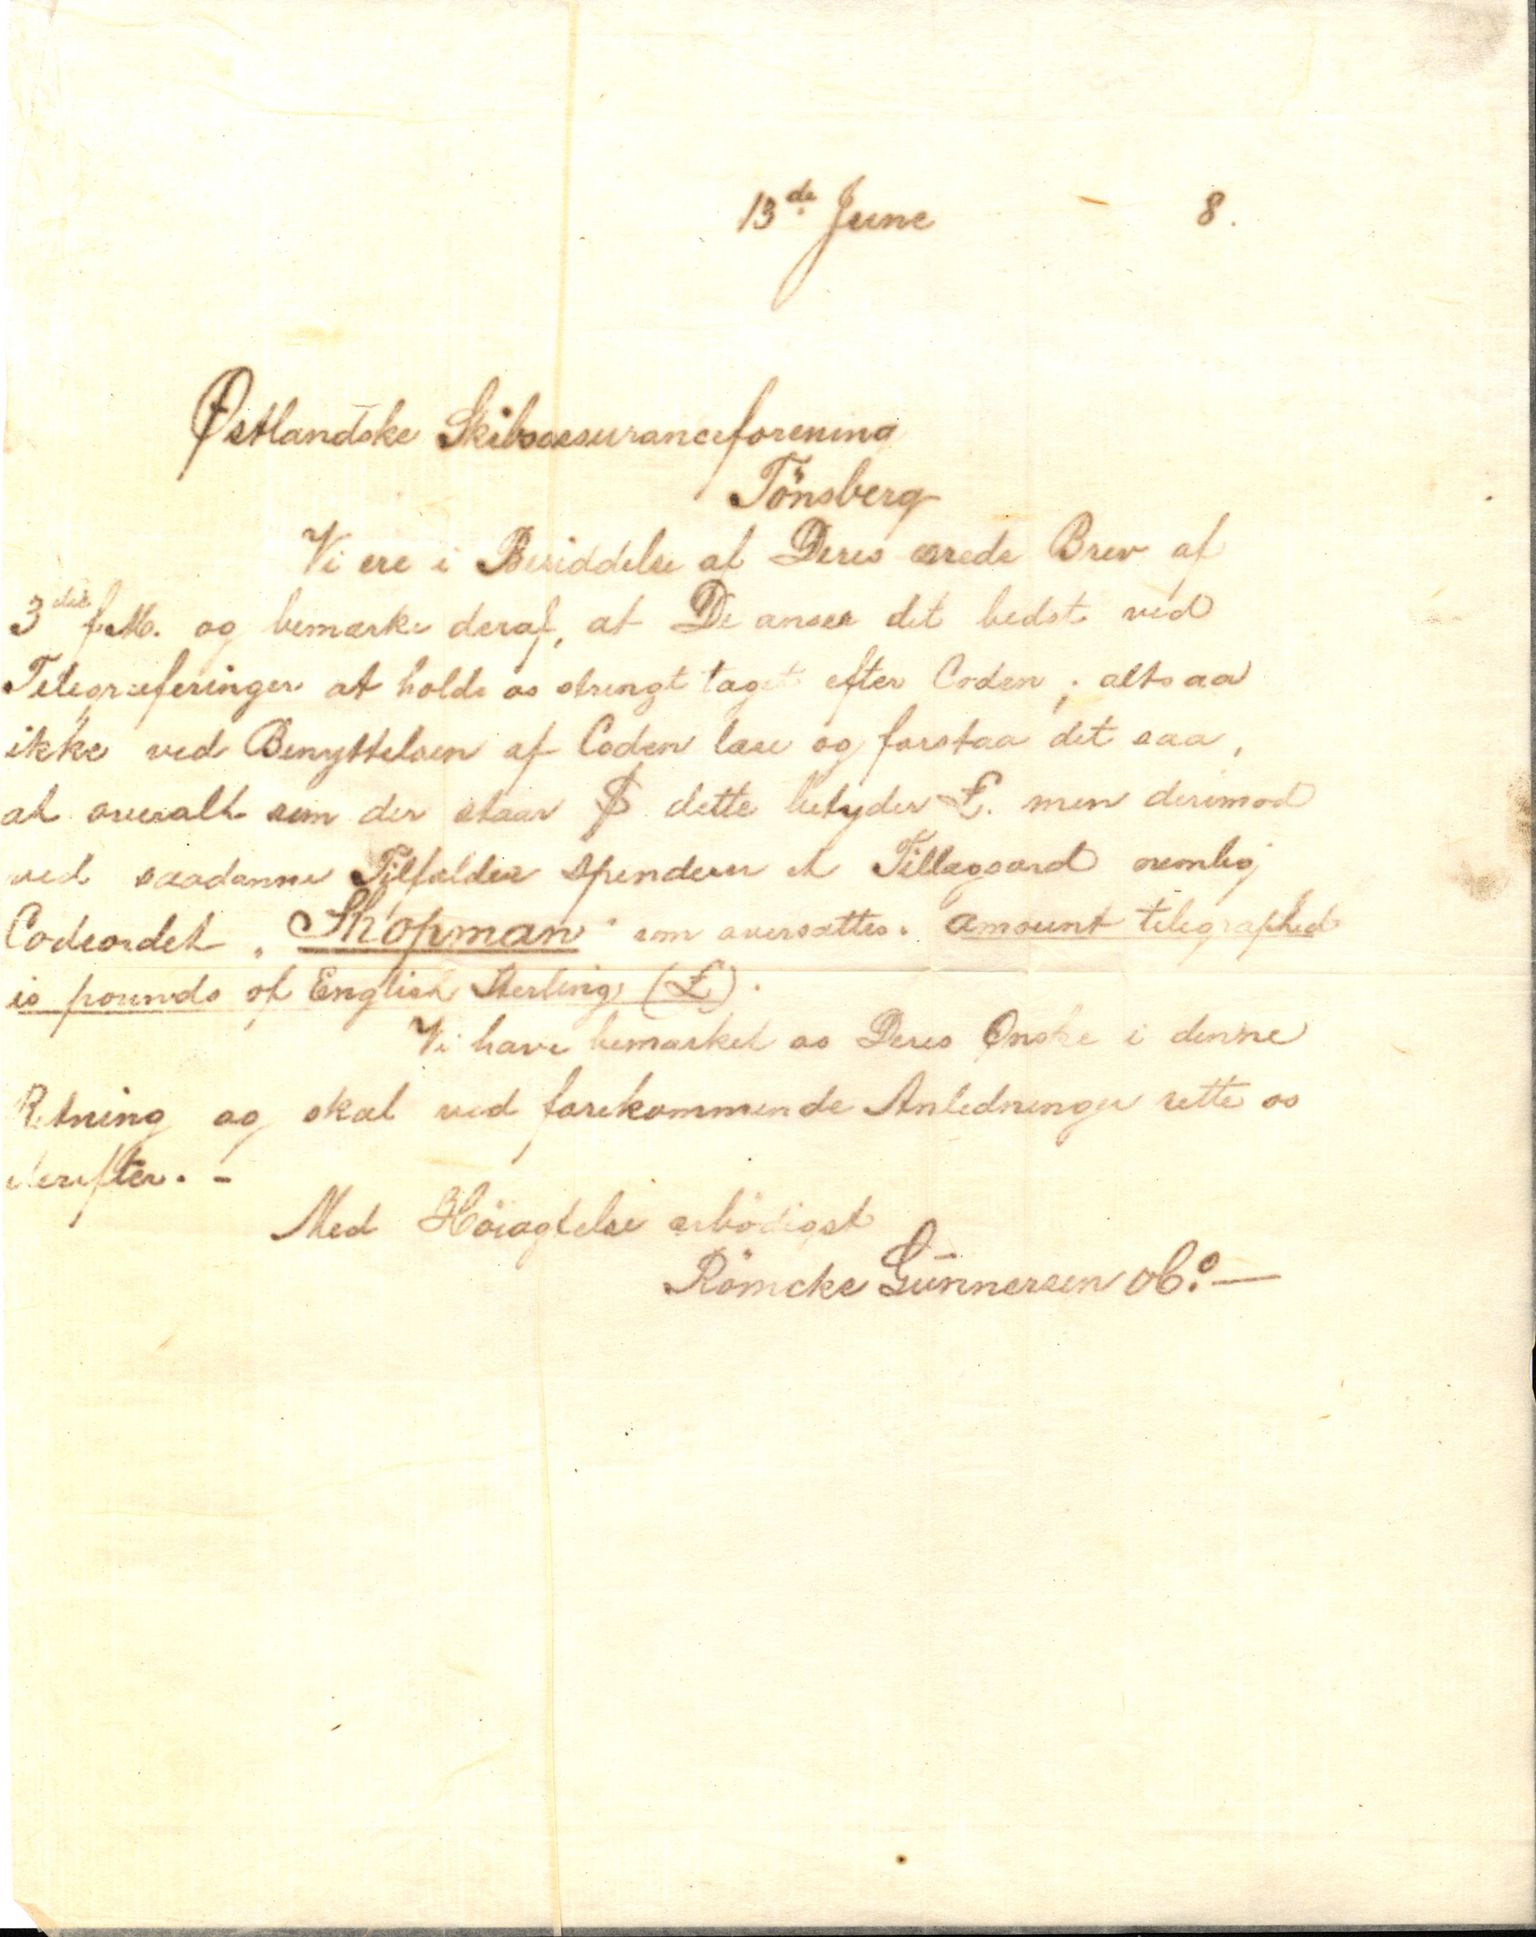 13de June 8.
Østlandske Skibsassuranceforening
Tönsberg
Vi ere i Besiddelse af Deres ærede Brev af
3die f. M. og bemærke deraf, at De anser det bedst ved
Telegraferinger at holde os strengt taget efter Coden; altsaa
ikke ved Benyttelsen af Coden læse og forstaa det saa,
at overalt som der staar $ dette betyder £. men derimod
ved saadanne Tilfælder spenderer et Tillægsord nemlig
Codeordet „Shopman" som oversættes. amount telegraphed
is pounds of English Sterling (£).
Vi have bemærket os Deres Ønske i denne
Retning og skal ved forekommende Anledninger rette os
derefter. -
Med Höiagtelse ærbödigst
Römcke Gunnersen & Co. —